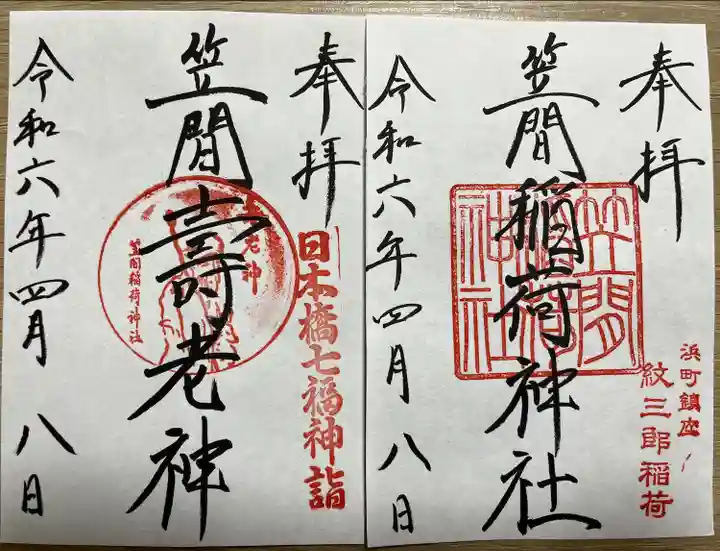 奉拝
日本橋七福神詣
笠間壽老神
老神
笠間稲荷神社
令和六年四月八日
奉拝
浜町鎮座
紋三郎稲荷
笠間稲荷神社
笠間稲荷神社
令和六年四月八日